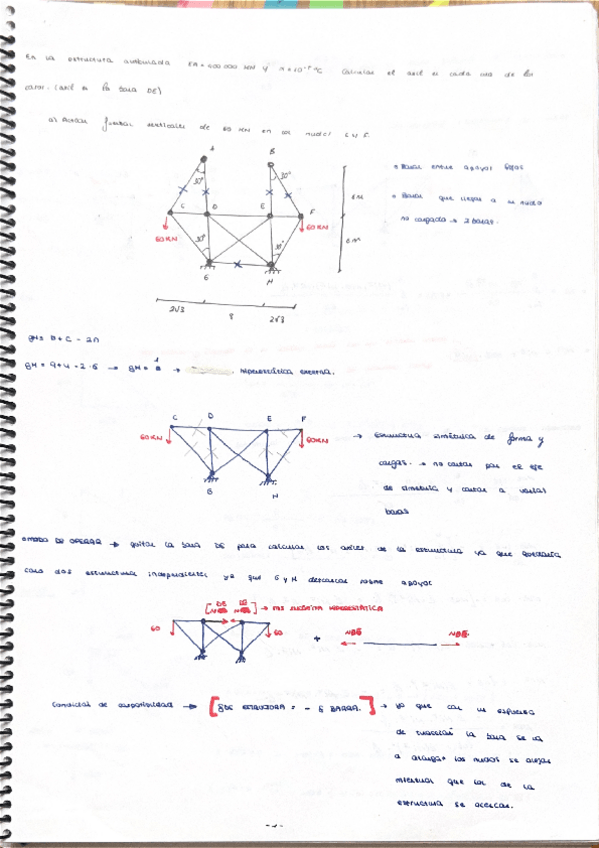 En la estructura articulada EA = 400 000 KN y α = 10⁻⁵ ºC Calcular el axil en cada una de las
barras. (axil en la barra DE)
a) Actúan fuerzas verticales de 60 KN en los nudos C y F.
A
B
30º
30º
C
D
E
F
60KN
60KN
30º
30º
G
H
2√3
8
2√3
6M
6M
• Barras entre apoyos fijos
• Barras que llegan a un nudo
no cargado → 2 barras.
GH = B + C - 2N
GH = 9 + 4 - 2·6 → GH = 1 → hiperestática externa.
C
D
E
F
60KN
60KN
H
→ Estructura simétrica de forma y
cargas. → no cortar por el eje
de simetría y cortar a varias
barras
MODO DE OPERAR → quitar la barra DE para calcular los axiles de la estructura ya que quedaría
como dos estructuras independientes ya que G y H descansan sobre apoyos
→ mi incógnita hiperestática
60
60
+
NDE
NDE
Condición de compatibilidad → [δDE ESTRUCTURA = - δ BARRA.] → ya que con un esfuerzo
de tracción la barra se va
a alargar los nudos se alejan
mientras que los de la
estructura se acercan.